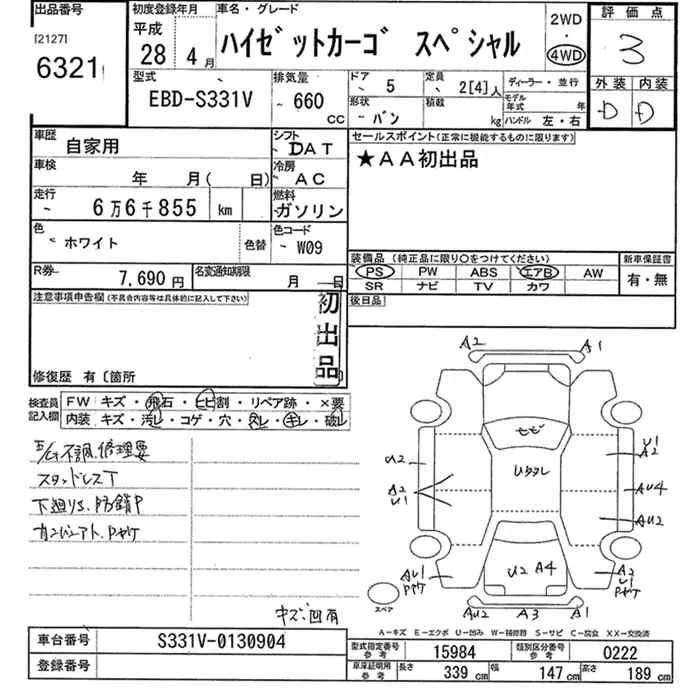 出品番号
[2127]
6321
初度登録年月
平成
28年 4月
車名・グレード
ハイゼットカーゴ スペシャル
2WD
4WD
評価点
3
外装 内装
D D
型式
EBD-S331V
排気量
660
CC
ドア
5
定員
2[4]人
形状
バン
積載
kg
ディーラー・並行
モデル年式 年
ハンドル 左・右
車歴
自家用
シフト
DAT
車検
年 月( 日)
冷房
AC
走行
6万6千855 km
燃料
ガソリン
色
ホワイト
色替
色コード
W09
R券
7,690円
名変通知期限
月 日
セールスポイント(正常に機能するものに限ります)
★AA初出品
装備品(純正品に限り○をつけてください)
PS PW ABS エアB AW
SR ナビ TV カワ
新車保証書
有・無
後日品
注意事項申告欄(不具合内容等は具体的に記入して下さい)
初出品
修復歴 有〔箇所
検査員記入欄
FW キズ・飛石・ヒビ割・リペア跡・×要
内装 キズ・汚レ・コゲ・穴・スレ・キレ・破レ
不調.修理要
スタッドレスT
下廻りS.防錆P
カンバンアト.Pヤケ
キズ.凹有
A2 A1
モモ゛
U2
U1
A2
A2
U1
Uタタレ
AU4
AU2
U2 A4
AU1
Pヤケ
A2
U1
Pヤケ
AU2 A3 A1
スペア
A-キズ E-エクボ U-凹み W-補修跡 S-サビ C-腐食 XX-交換済
車台番号
S331V-0130904
登録番号
型式指定番号
参考
15984
類別区分番号
参考
0222
車庫証明用
参考
長さ
339 cm
幅
147 cm
高さ
189 cm